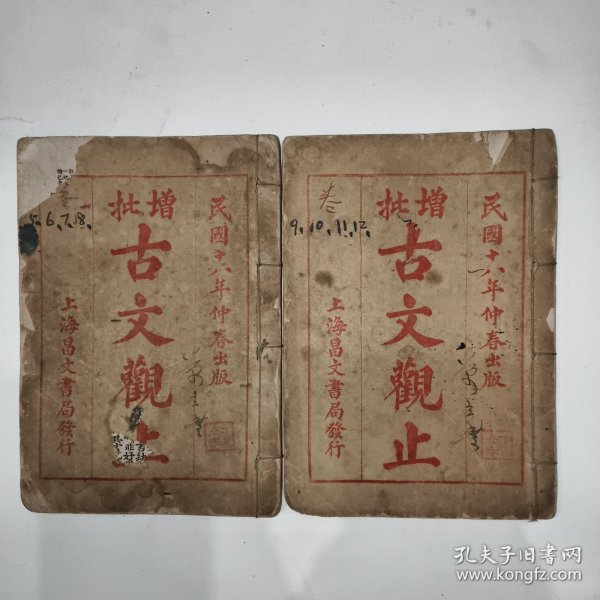 民國十八年仲春出版
增批
古文觀止
上海昌文書局發行
5.6.7.8.
民國十八年仲春出版
增批
古文觀止
上海昌文書局發行
卷
9.10.11.12.
孔夫子旧书网
www.kongfz.com